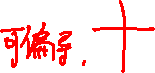 可偏导，十